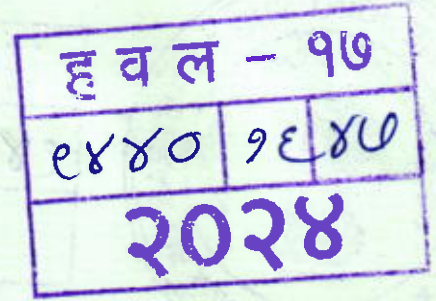 ह व ल - १७
९४४० १६ ४७
२०२४